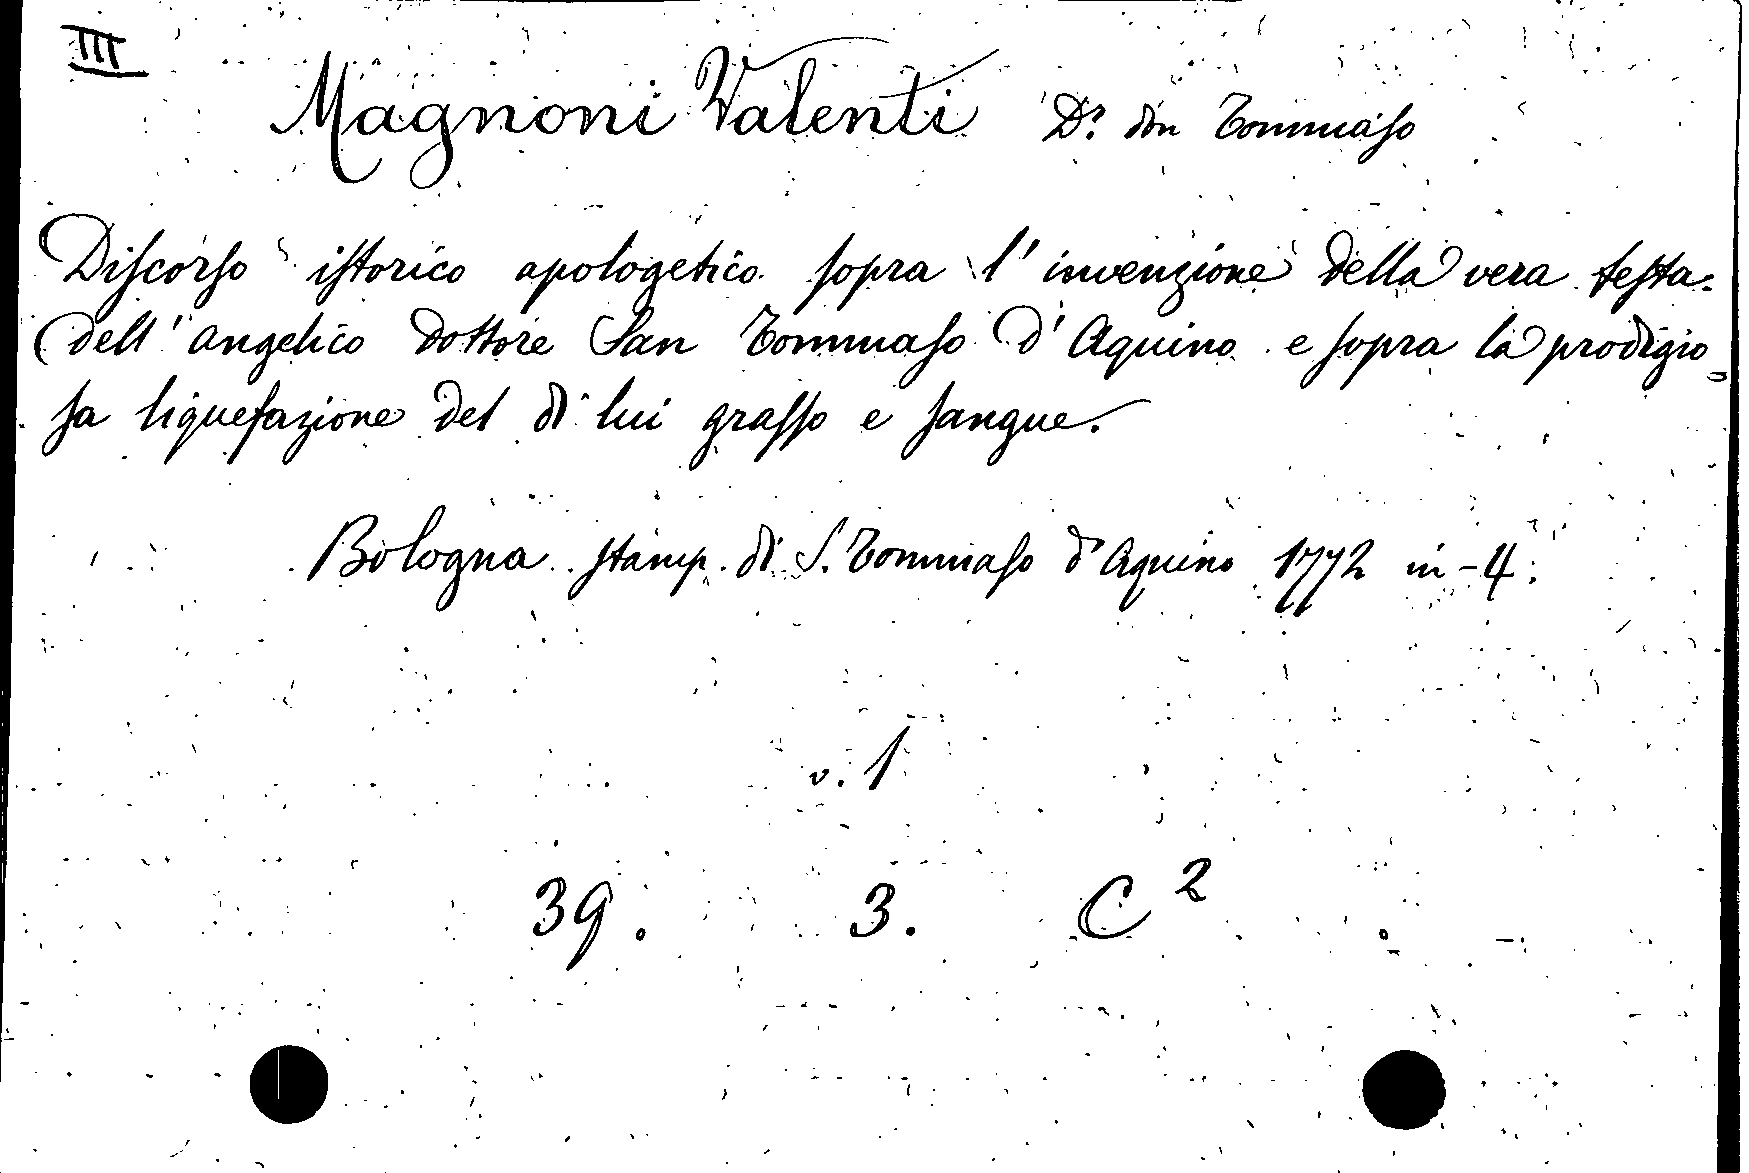 III
Magnoni Valenti Dr. don Tommaso
Discorso istorico apologetico sopra l' invenzione della vera testa
dell' angelico dottore San Tommaso d' Aquino e sopra la prodigio
sa liquefazione del di lui grasso e sangue.
Bologna stamp. di S. Tommaso d' Aquino 1772 in-4.
v. 1
39. 3. C 2